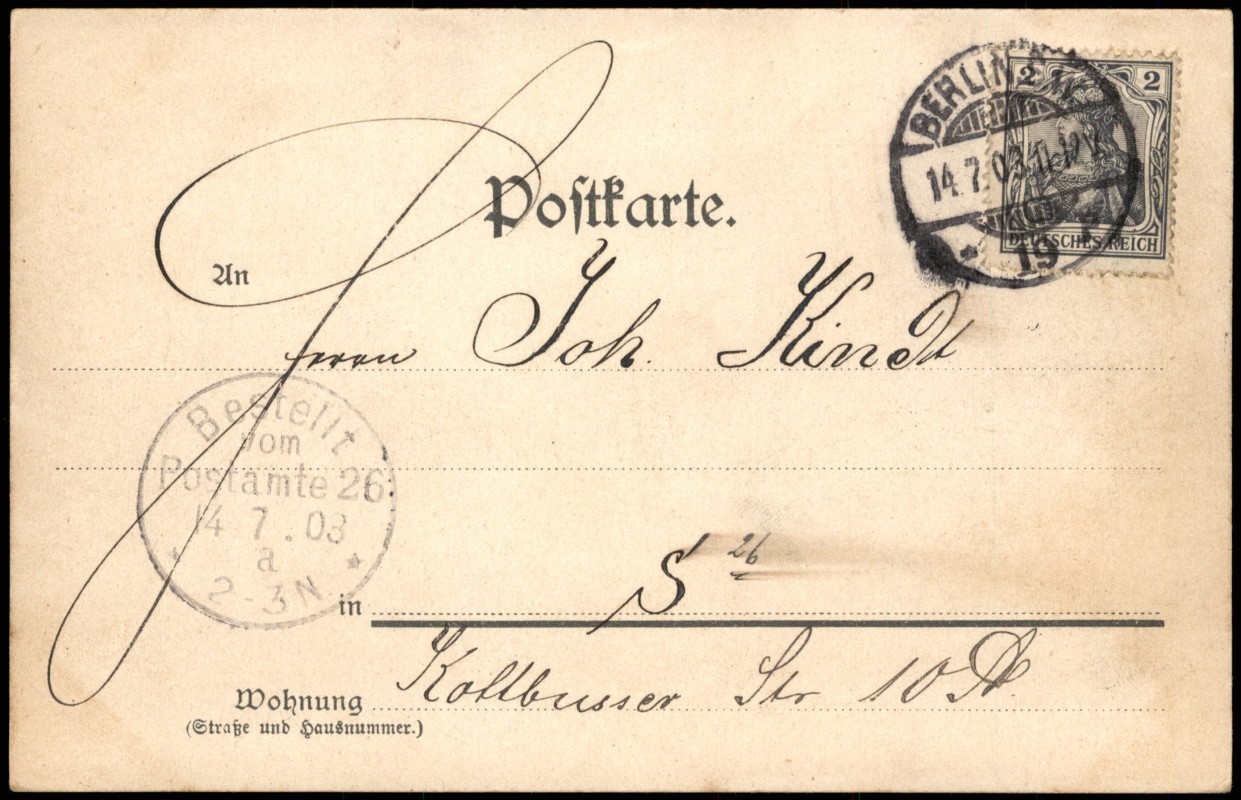 Postkarte.
BERLIN
14.7.03.11-12V.
* 19
2 2
DEUTSCHES REICH
An
Herrn Joh. Kindt
Bestellt
vom
Postamte 26
14 7.03
a
* 2-3N *
in S 26
Wohnung Kottbusser Str 10
(Straße und Hausnummer.)